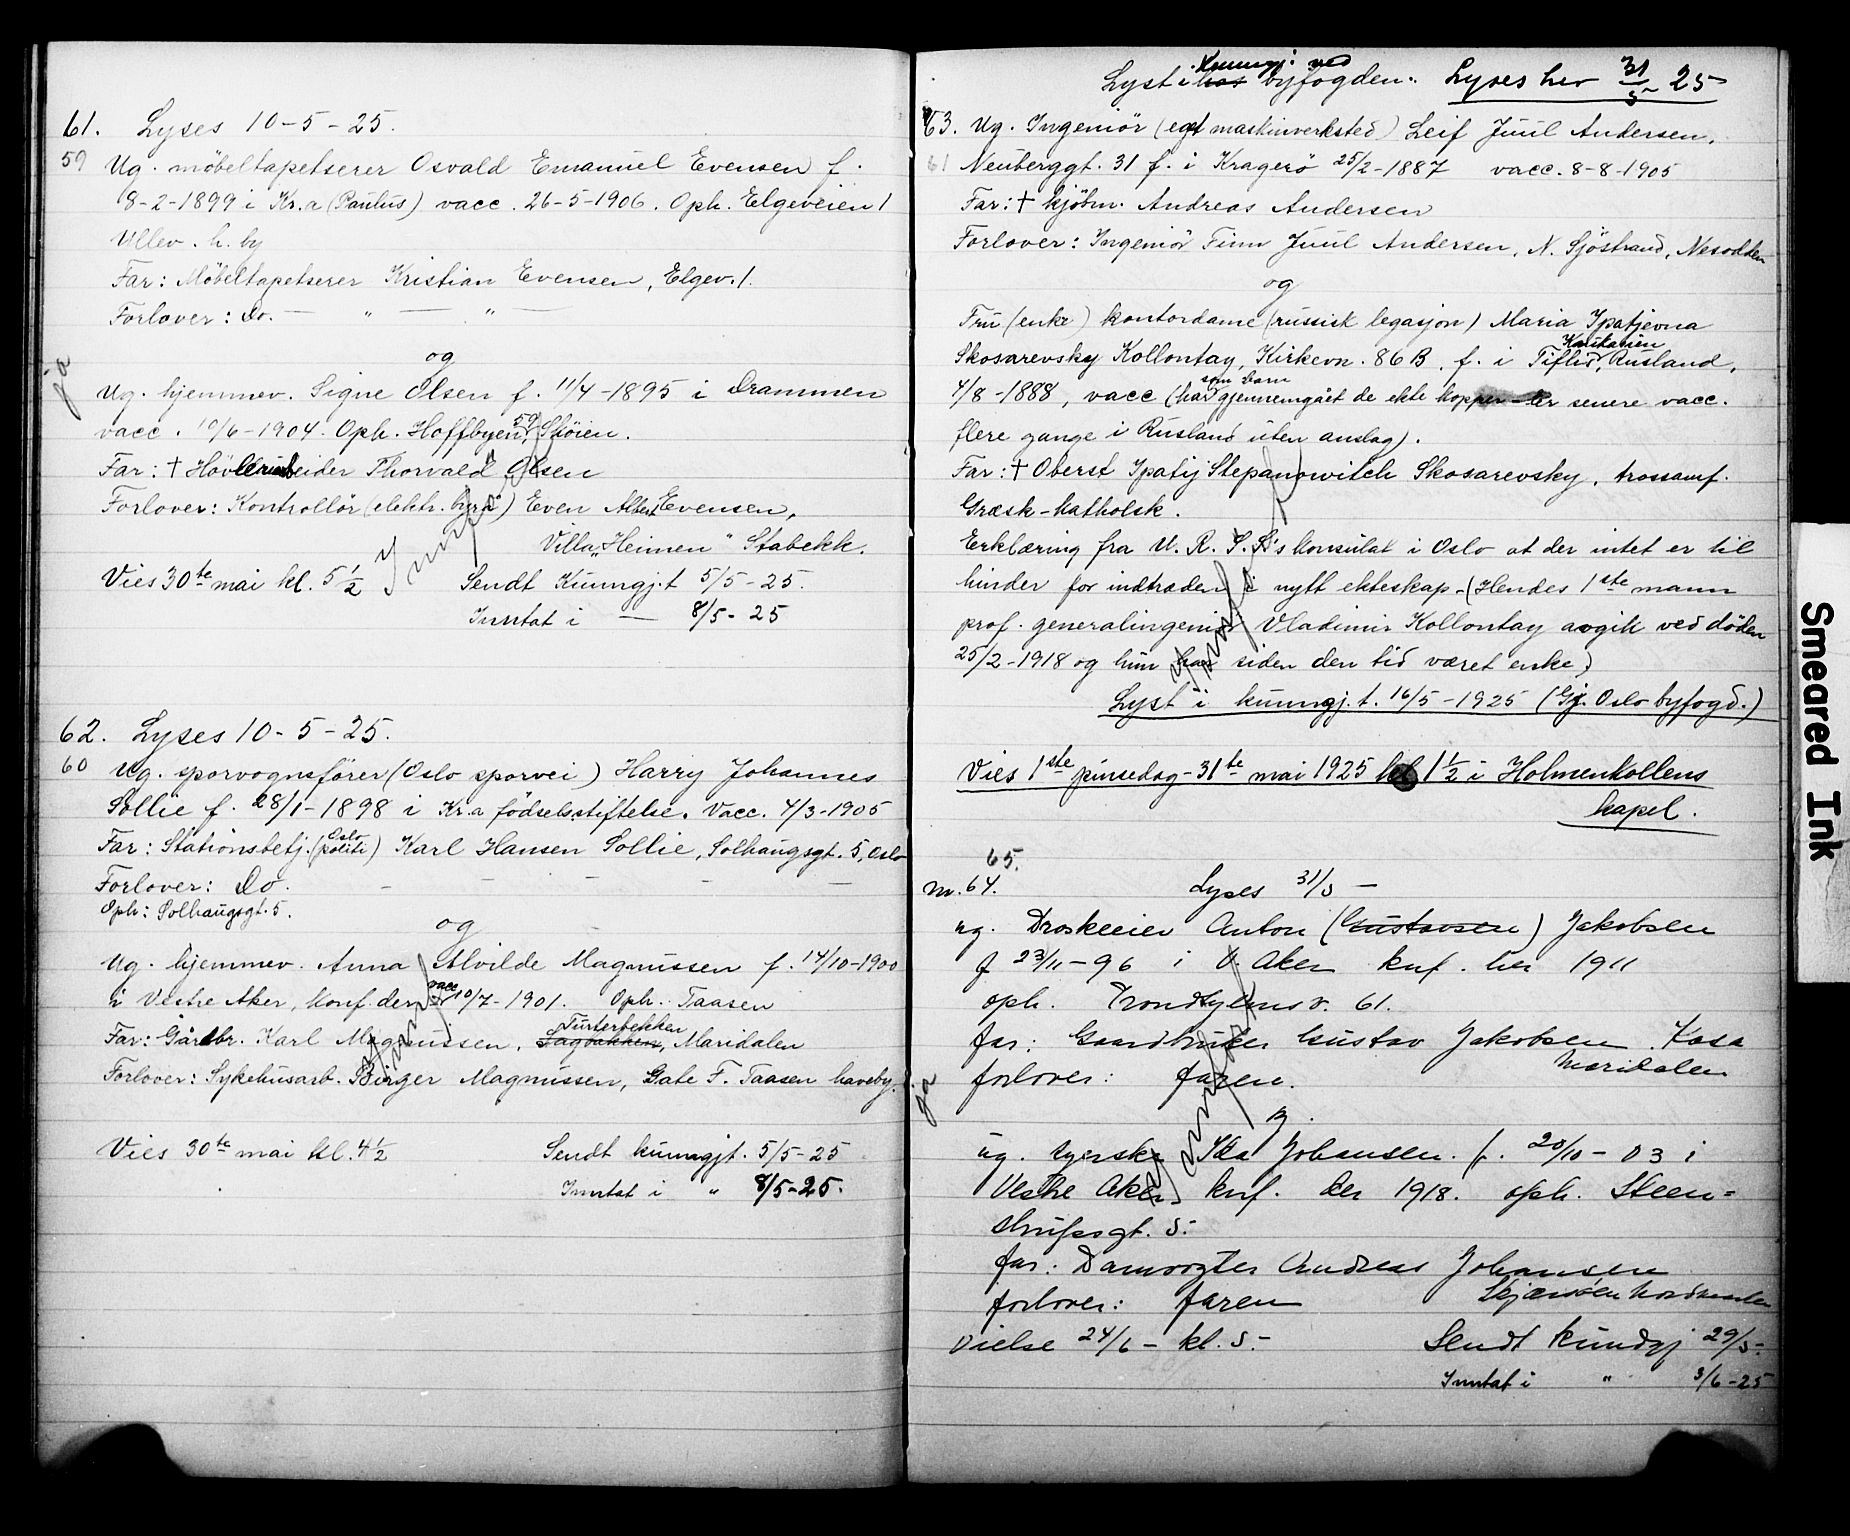 61. Lyses 10-5-25.
59 Ug. möbeltapetserer Osvald Emanuel Evensen f.
8-2-1899 i Kr.a (Paulus) vacc. 26-5-1906. Oph. Elgeveien 1
Ullev. h. by
Far: Möbeltapetserer Kristian Evensen, Elgev. 1.
Forlover: Do. — " — " —
og
ja
Ug. hjemmev. Signe Olsen f. 11/4-1895 i Drammen
vacc. 10/6-1904. Oph. Hoffbyen 59, Skøien.
Far: † Hövleriarbeider Thorvald Olsen
Forlover: Kontrollör (elektr. byrå) Even Albert Evensen,
Villa „Heimen" Stabekk.
Vies 30te mai kl. 5 1/2 Sendt Kunngj.t 5/5-25.
Inntat i — 8/5-25
62. Lyses 10-5-25.
60 Ug. sporvognsförer (Oslo sporvei) Harry Johannes
Sollie f. 28/1-1898 i Kr.a födselsstiftelse. Vacc. 4/3-1905
Far: Stationsbetj. (Oslo politi) Karl Hansen Sollie, Solhaugsgt. 5, Oslo
Forlover: Do. - - - - -
Oph: Solhaugsgt. 5.
og
Ug. hjemmev. Anna Alvilde Magnussen f. 14/10-1900
i Vestre Aker, konf. der vacc 10/7-1901. Oph. Taasen
Far: Gårdbr. Karl Magnussen, Turterbekken Sagbakken, Maridalen
Forlover: Sykehusarb. Birger Magnussen, Gate F. Taasen haveby.
Vies 30te mai kl. 4 1/2 Sendt kunngjt. 5/5-25
Inntat i " 8/5-25.
Lyst i hos Kunngj. ved byfogden. Lyses her 31/5 25
63. Ug. Ingeniör (eget maskinverksted) Leif Juul Andersen,
61 Neuberggt. 31 f. i Kragerö 25/2-1887 vacc. 8-8-1905
Far: † kjöbm. Andreas Andersen
Forlover: Ingeniör Finn Juul Andersen, N. Sjöstrand, Nesodden
og
Fru (enke) kontordame (russisk legasjon) Maria Ypatjevna
Skosarevsky Kollontay, Kirkevn. 86 B. f. i Tiflis, Kaukasien Rusland,
4/8-1888, vacc (har som barn gjennemgået de ekte kopper - er senere vacc.
flere gange i Rusland uten anslag).
Far: † Oberst Ypatij Stepanowitch Skosarevsky, trossamf.
Græsk-katholsk.
Erklæring fra U. R. S. S's konsulat i Oslo at der intet er til
hinder for indtræden i nytt ekteskap. (Hendes 1ste mann
prof. generalingeniör Vladimir Kollontay avgik ved döden
25/2-1918 og hun har siden den tid været enke)
Lyst i kunngj.t. 16/5-1925 (Gj. Oslo byfogd.)
Vies 1ste pinsedag - 31te mai 1925 kl 1 1/2 i Holmenkollens
kapel.
65.
nr. 64. Lyses 31/5 —
ug. Droskeeier Anton (Gustavsen) Jakobsen
f 23/11-96 i V. Aker knf. her 1911
oph. Trondhjemsv. 61.
far: Gaardbruker Gustav Jakobsen Kasa
Maridalen
forlover: faren.
ja
og
ug. syerske Ida Johansen f. 20/10-03 i
Vestre Aker knf. her 1918. oph. Steen-
strupsgt. 5.
far: Damvogter Andreas Johansen
Skjærsöen Nordmarken
forlover: faren
Vielse 24/6- kl. 5.- Sendt kundgj 29/5.
Inntat i " 3/6-25
Smeared Ink